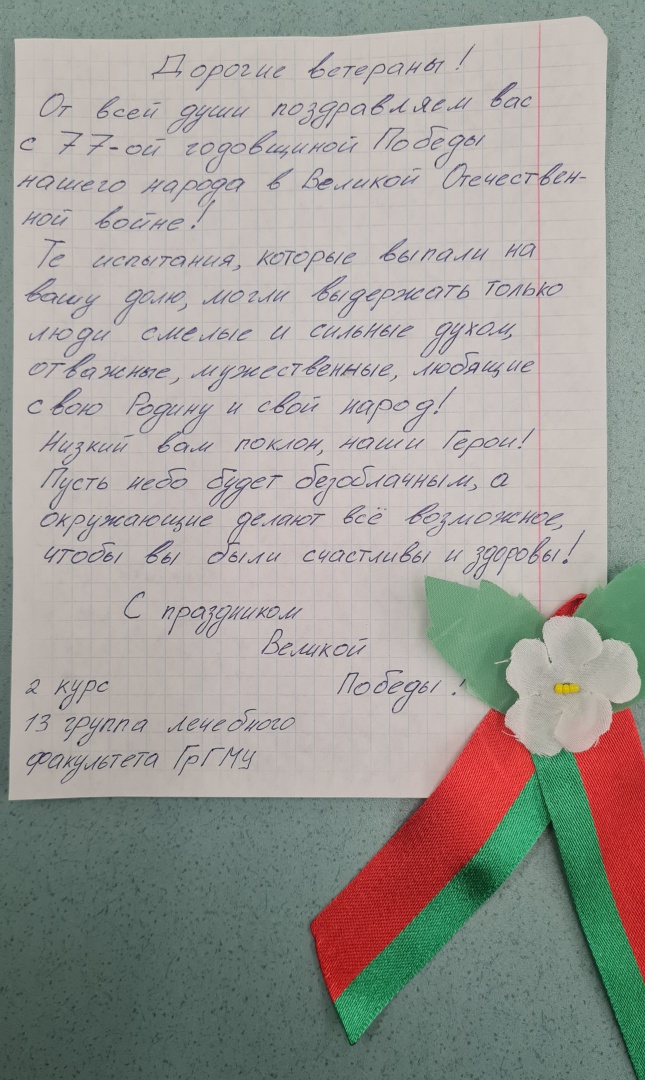 Дорогие ветераны!
От всей души поздравляем вас
с 77-ой годовщиной Победы
нашего народа в Великой Отечествен-
ной войне!
Те испытания, которые выпали на
вашу долю, могли выдержать только
люди смелые и сильные духом,
отважные, мужественные, любящие
свою Родину и свой народ!
Низкий вам поклон, наши Герои!
Пусть небо будет безоблачным, а
окружающие делают всё возможное,
чтобы вы были счастливы и здоровы!
С праздником
Великой
Победы!
2 курс
13 группа лечебного
факультета ГрГМУ